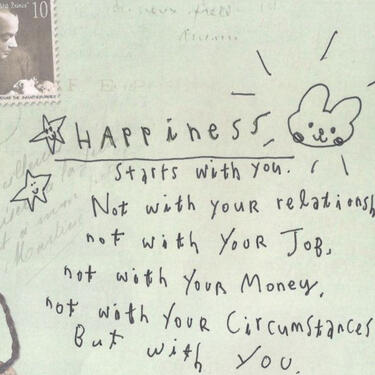 10
HAPPINESS
starts with you.
Not with your relationsh
not with your Job,
not with your Money,
not with your Circumstances
But with you.